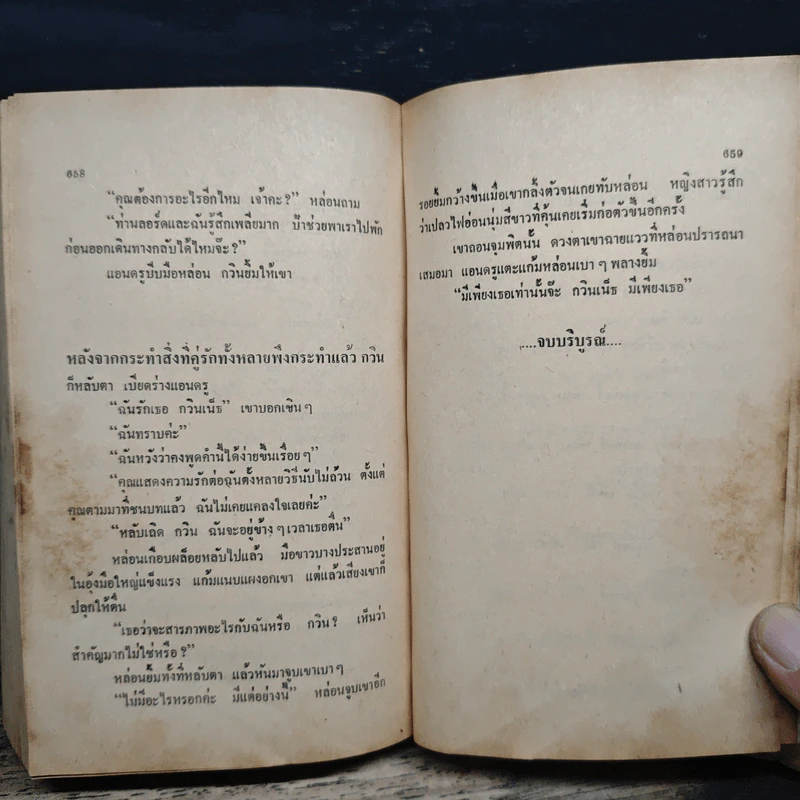 658
“คุณต้องการอะไรอีกไหม เจ้าคะ?” หล่อนถาม
“ท่านลอร์ดและฉันรู้สึกเพลียมาก ป้าช่วยพาเราไปพัก
ก่อนออกเดินทางกลับได้ไหมจ๊ะ?”
แอนดรูบีบมือหล่อน กวินยิ้มให้เขา
หลังจากกระทำสิ่งที่คู่รักทั้งหลายพึงกระทำแล้ว กวิน
ก็หลับตา เบียดร่างแอนดรู
“ฉันรักเธอ กวินเน็ธ” เขาบอกเขินๆ
“ฉันทราบค่ะ”
“ฉันหวังว่าคงพูดคำนี้ได้ง่ายขึ้นเรื่อยๆ”
“คุณแสดงความรักต่อฉันตั้งหลายวิธีนับไม่ถ้วน ตั้งแต่
คุณตามมาที่ชนบทแล้ว ฉันไม่เคยแคลงใจเลยค่ะ”
“หลับเถิด กวิน ฉันจะอยู่ข้างๆเวลาเธอตื่น”
หล่อนเกือบผล็อยหลับไปแล้ว มือขาวบางประสานอยู่
ในอุ้งมือใหญ่แข็งแรง แก้มแนบแผงอกเขา แต่แล้วเสียงเขาก็
ปลุกให้ตื่น
“เธอว่าจะสารภาพอะไรกับฉันหรือ กวิน? เห็นว่า
สำคัญมากไม่ใช่หรือ?”
หล่อนยิ้มทั้งที่หลับตา แล้วหันมาจูบเขาเบาๆ
“ไม่มีอะไรหรอกค่ะ มีแต่อย่างนี้” หล่อนจูบเขาอีก
659
รอยยิ้มกว้างขึ้นเมื่อเขากลิ้งตัวจนเกยทับหล่อน หญิงสาวรู้สึก
ว่าเปลวไฟอ่อนนุ่มสีขาวที่คุ้นเคยเริ่มก่อตัวขึ้นอีกครั้ง
เขาถอนจุมพิตนั้น ดวงตาเขาฉายแววที่หล่อนปรารถนา
เสมอมา แอนดรูแตะแก้มหล่อนเบาๆ พลางยิ้ม
“มีเพียงเธอเท่านั้นจ๊ะ กวินเน็ธ มีเพียงเธอ”
....จบบริบูรณ์....